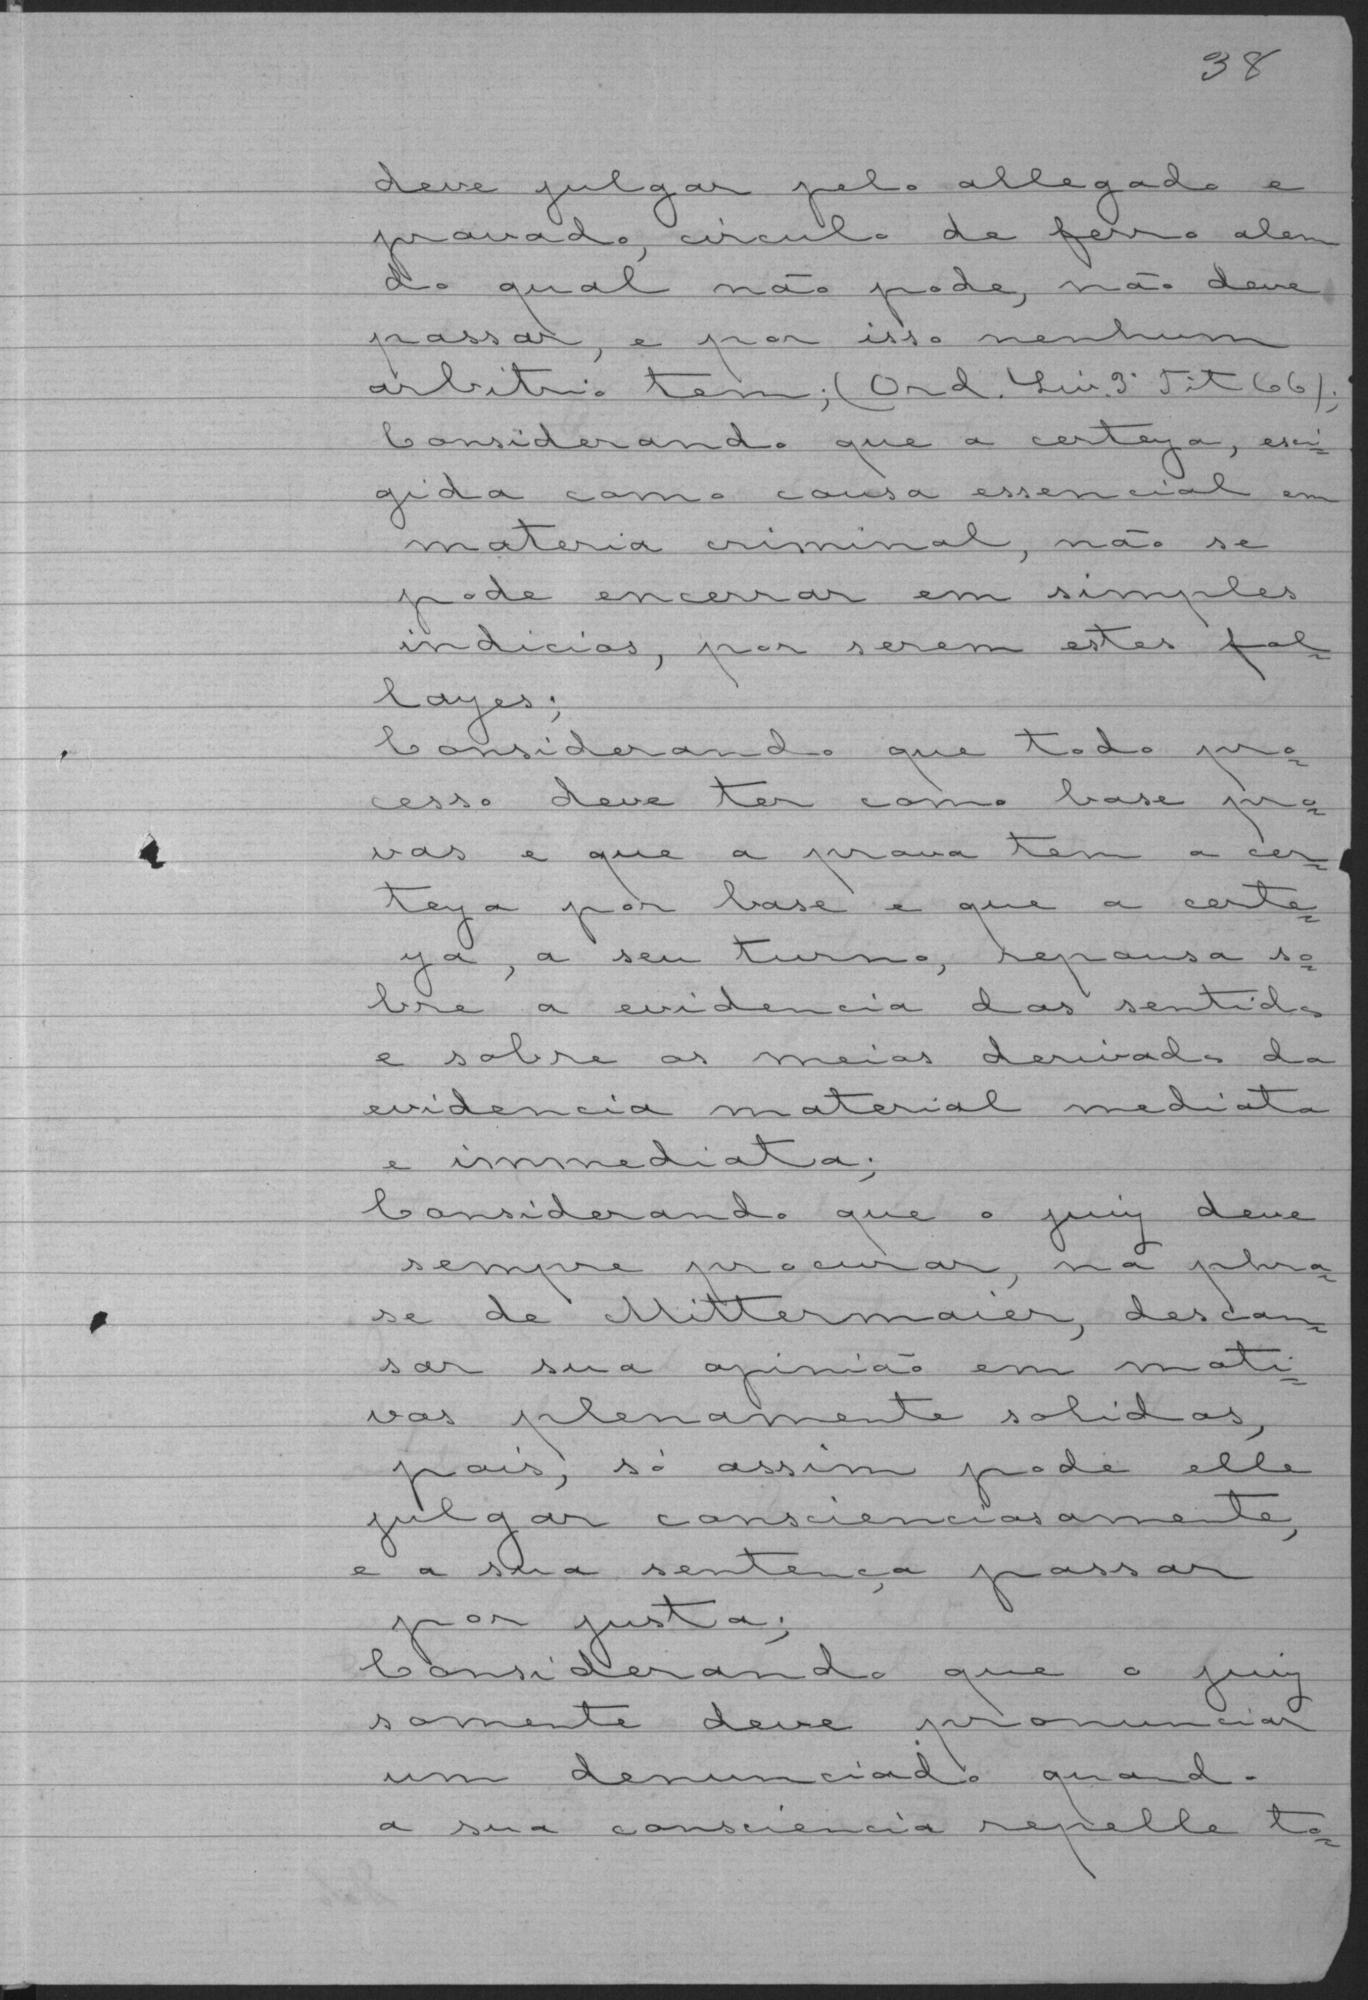 38
deve julgar pelo allegado e
provado, circulo de ferro alem
do qual não pode, não deve
passar, e por isso nenhum
arbitrio tem; (Ord. Liv. 3º Tit 66);
Considerando que a certeza, exi=
gida como cousa essencial em
materia criminal, não se
pode encerrar em simples
indicios, por serem estes fal=
lazes;
Considerando que todo pro=
cesso deve ter como base pro=
vas e que a prova tem a cer=
teza por base e que a certe=
za, a seu turno, repousa so=
bre a evidencia dos sentidos
e sobre os meios derivados da
evidencia material mediata
e immediata;
Considerando que o juiz deve
sempre procurar, na phra=
se de Mittermaier, descan=
sar sua opinião em moti=
vos plenamente solidos,
pois, só assim pode elle
julgar conscienciosamente,
e a sua sentença passar
por justa;
Considerando que o juiz
somente deve pronunciar
um denunciado quando
a sua consciencia repelle to=